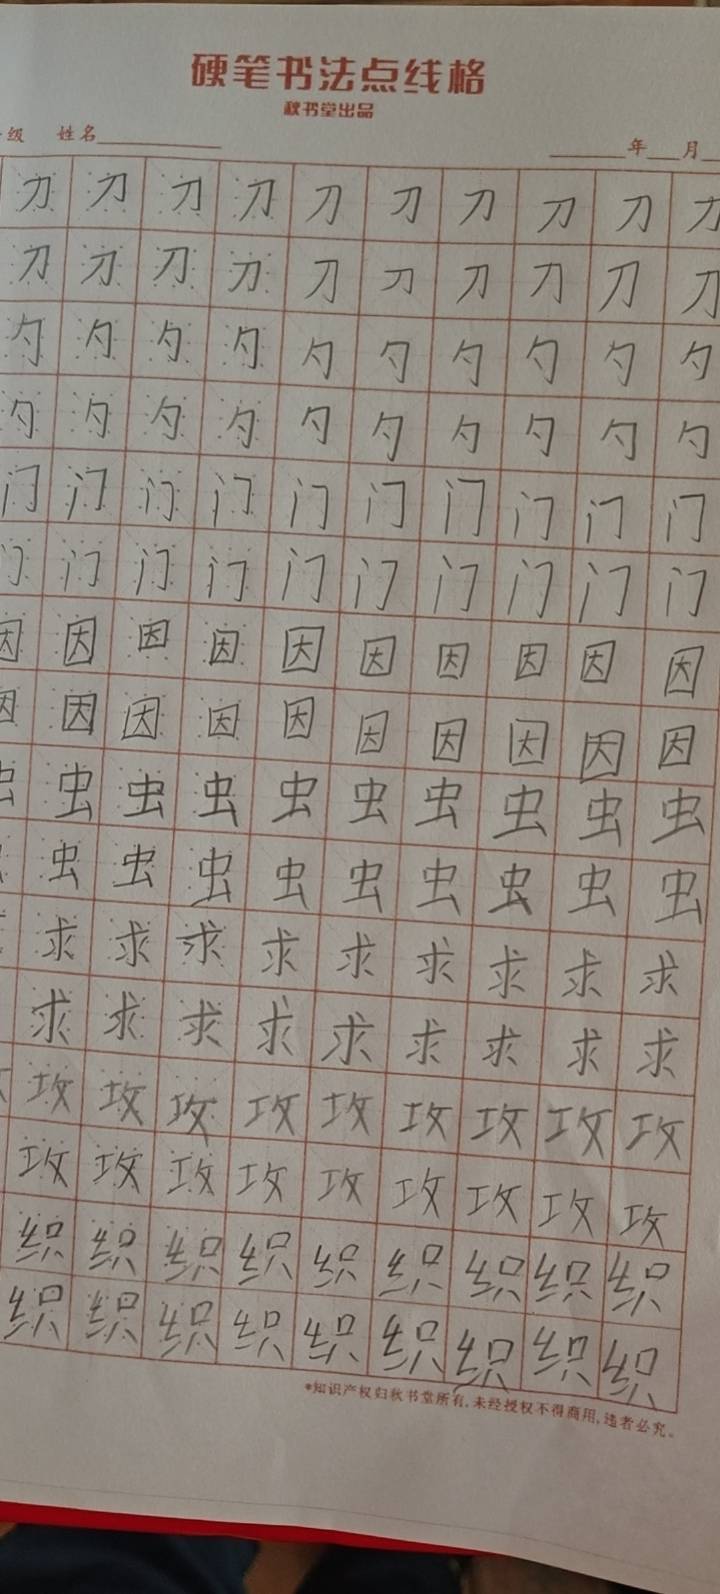 硬笔书法点线格
秋书堂出品
级 姓名 年 月
刀 刀 刀 刀 刀 刀 刀 刀 刀 刀
刀 刀 刀 刀 刀 刀 刀 刀 刀 刀
勺 勺 勺 勺 勺 勺 勺 勺 勺 勺
勺 勺 勺 勺 勺 勺 勺 勺 勺 勺
门 门 门 门 门 门 门 门 门 门
门 门 门 门 门 门 门 门 门 门
因 因 因 因 因 因 因 因 因 因
因 因 因 因 因 因 因 因 因 因
虫 虫 虫 虫 虫 虫 虫 虫 虫 虫
虫 虫 虫 虫 虫 虫 虫 虫 虫
求 求 求 求 求 求 求 求 求
求 求 求 求 求 求 求 求 求
攻 攻 攻 攻 攻 攻 攻 攻 攻
攻 攻 攻 攻 攻 攻 攻 攻 攻
织 织 织 织 织 织 织 织 织
织 织 织 织 织 织 织 织 织
*知识产权归秋书堂所有,未经授权不得商用,违者必究。